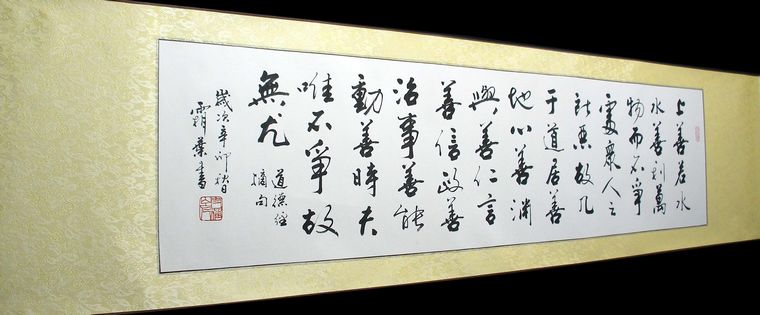 上善若水
水善利萬
物而不爭
處衆人之
所惡故几
于道居善
地心善渊
與善仁言
善信政善
治事善能
動善時夫
唯不爭故
無尤
道德經
摘句
歲次辛卯秋日
霜葉書